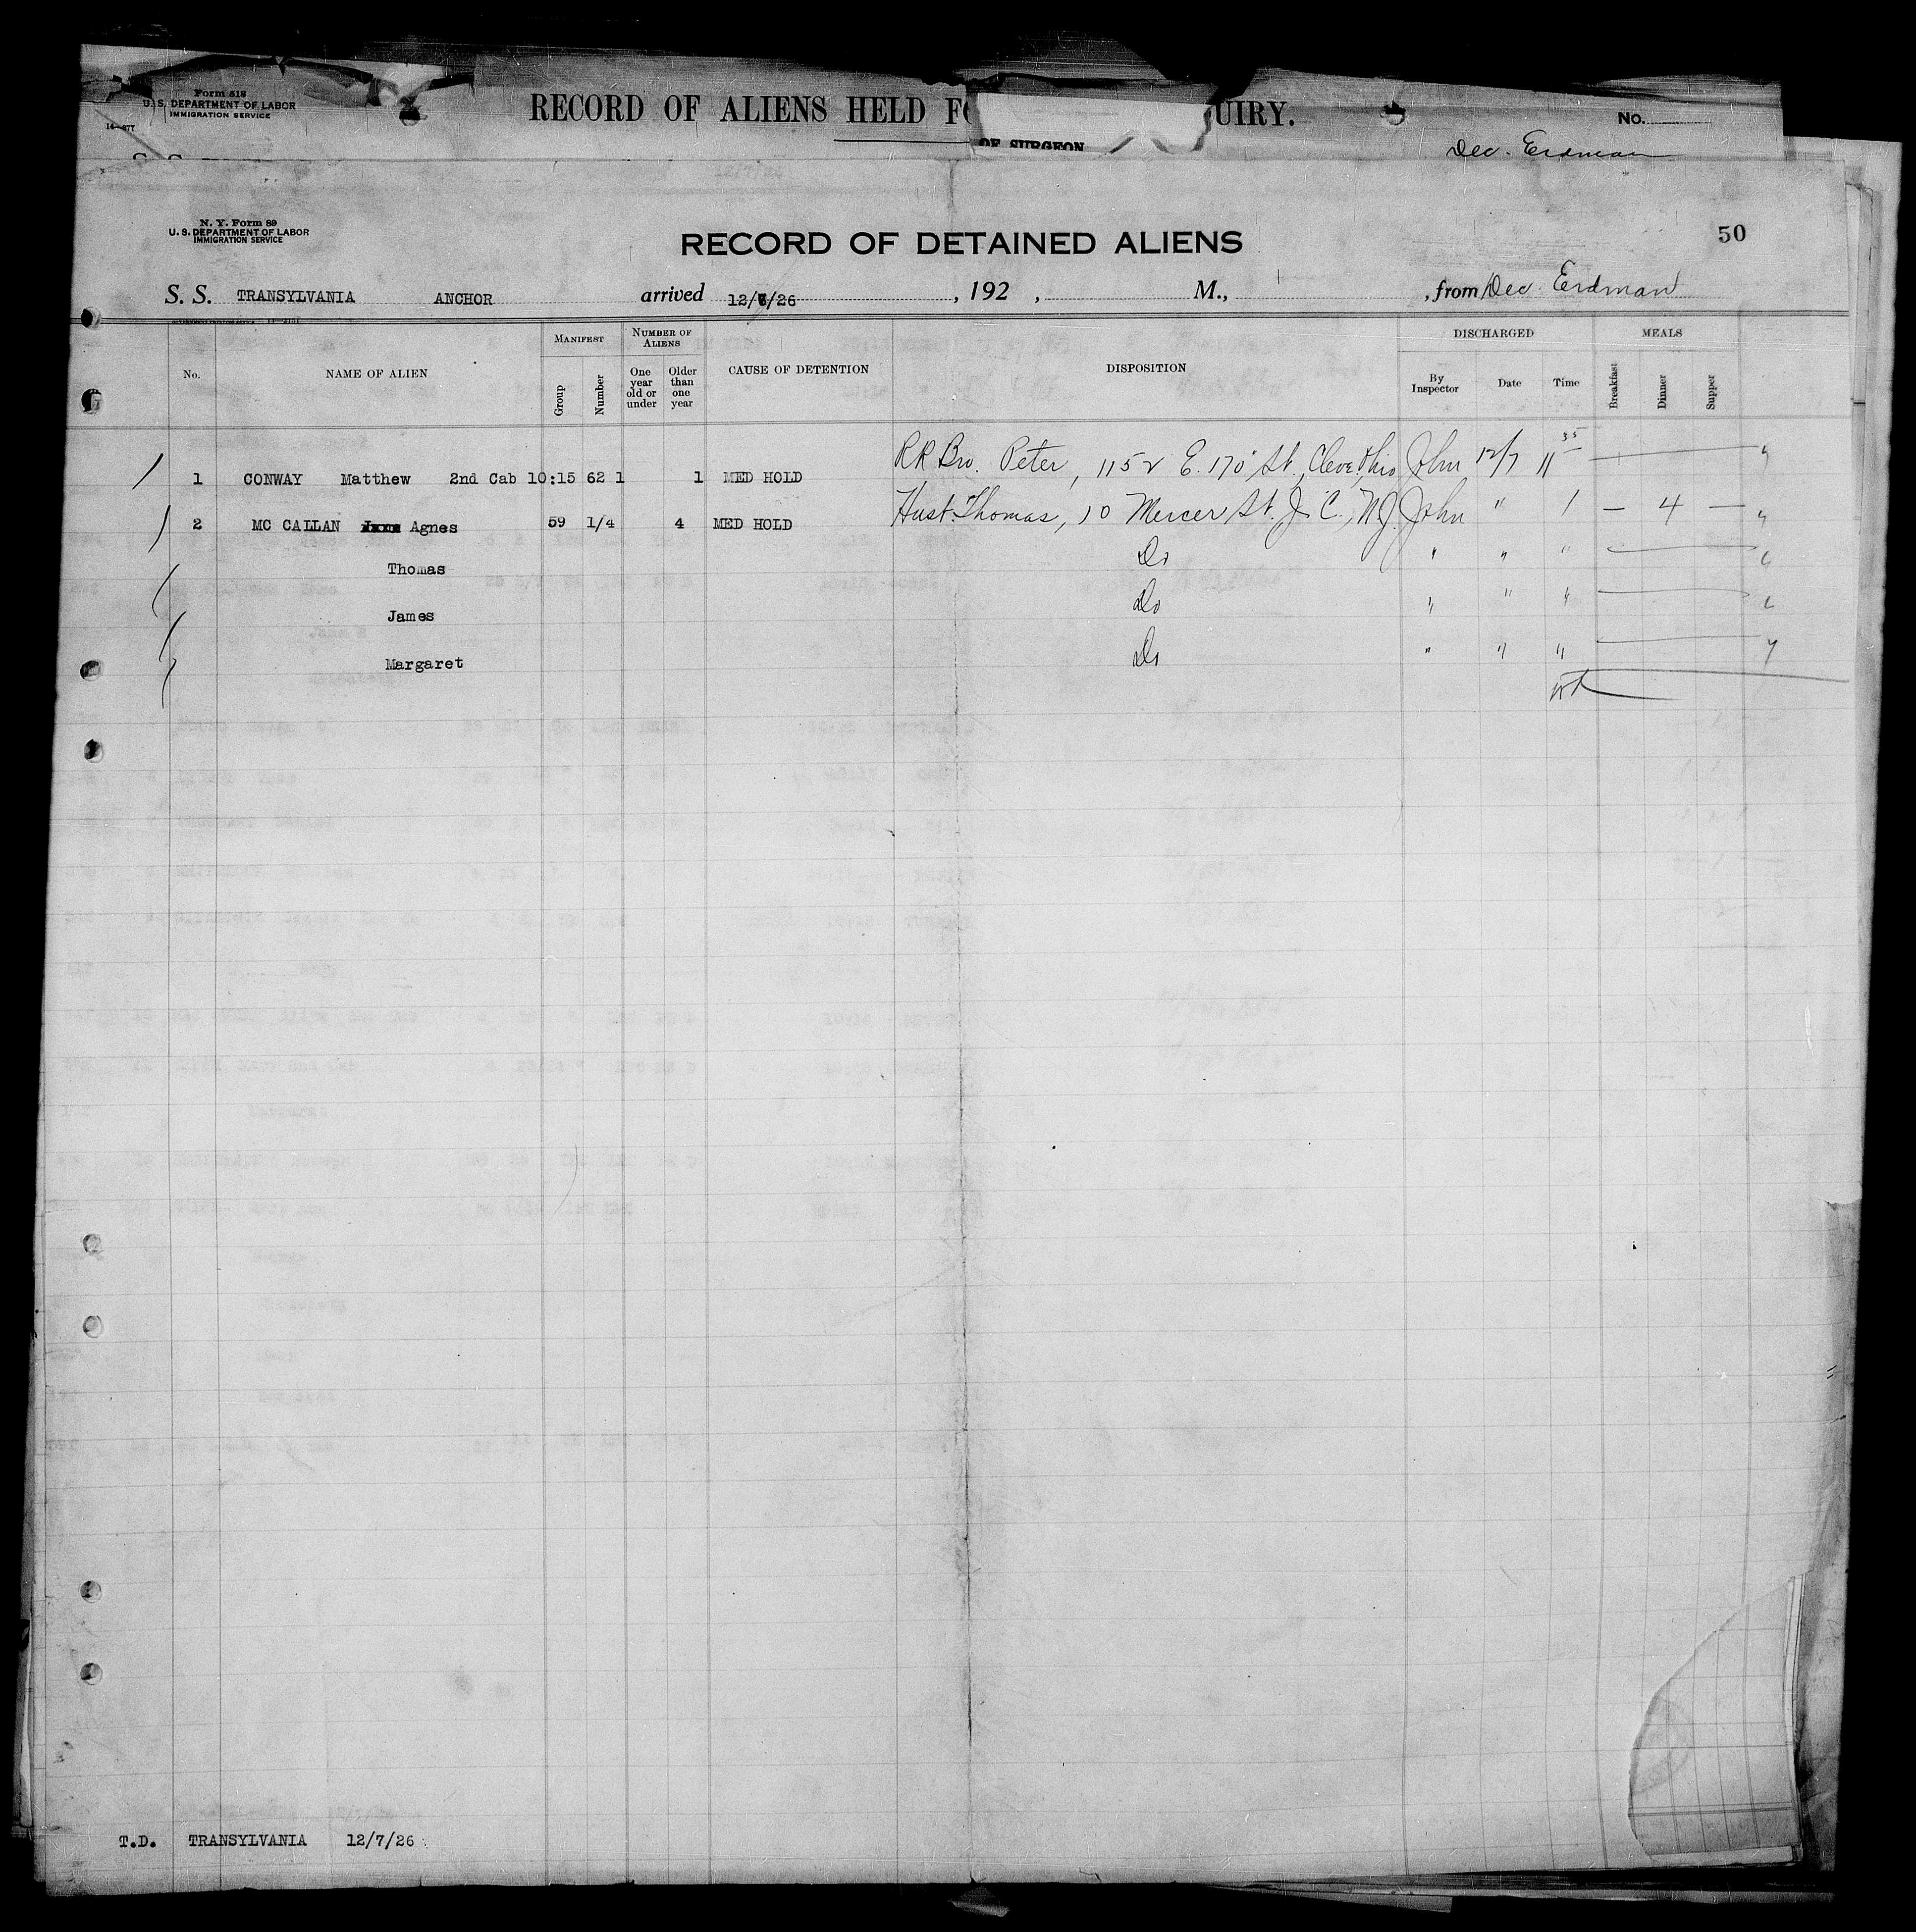 Form 518
U. S. DEPARTMENT OF LABOR
IMMIGRATION SERVICE
RECORD OF ALIENS HELD
UIRY.
No.
OF SURGEON
Dec. Erdman
N. Y. Form 89
U. S. DEPARTMENT OF LABOR
IMMIGRATION SERVICE
RECORD OF DETAINED ALIENS
50
S. S. TRANSYLVANIA ANCHOR arrived 12/7/26, 192 , M., , from Dec. Erdman
MANIFEST NUMBER OF ALIENS DISCHARGED MEALS
No. NAME OF ALIEN Group Number One year old or under Older than one year CAUSE OF DETENTION DISPOSITION By Inspector Date Time Breakfast Dinner Supper
1 CONWAY Matthew 2nd Cab 10:15 62 1 1 MED HOLD RR Bro. Peter, 1152 E. 170 St., Cleve, Ohio John 12/7 11 35
2 MC CALLAN Agnes 59 1/4 4 MED HOLD Husb. Thomas, 10 Mercer St. J. C., N.J. John " 1 — 4 —
Thomas Do " " "
James Do " " "
Margaret Do " " "
T.D. TRANSYLVANIA 12/7/26